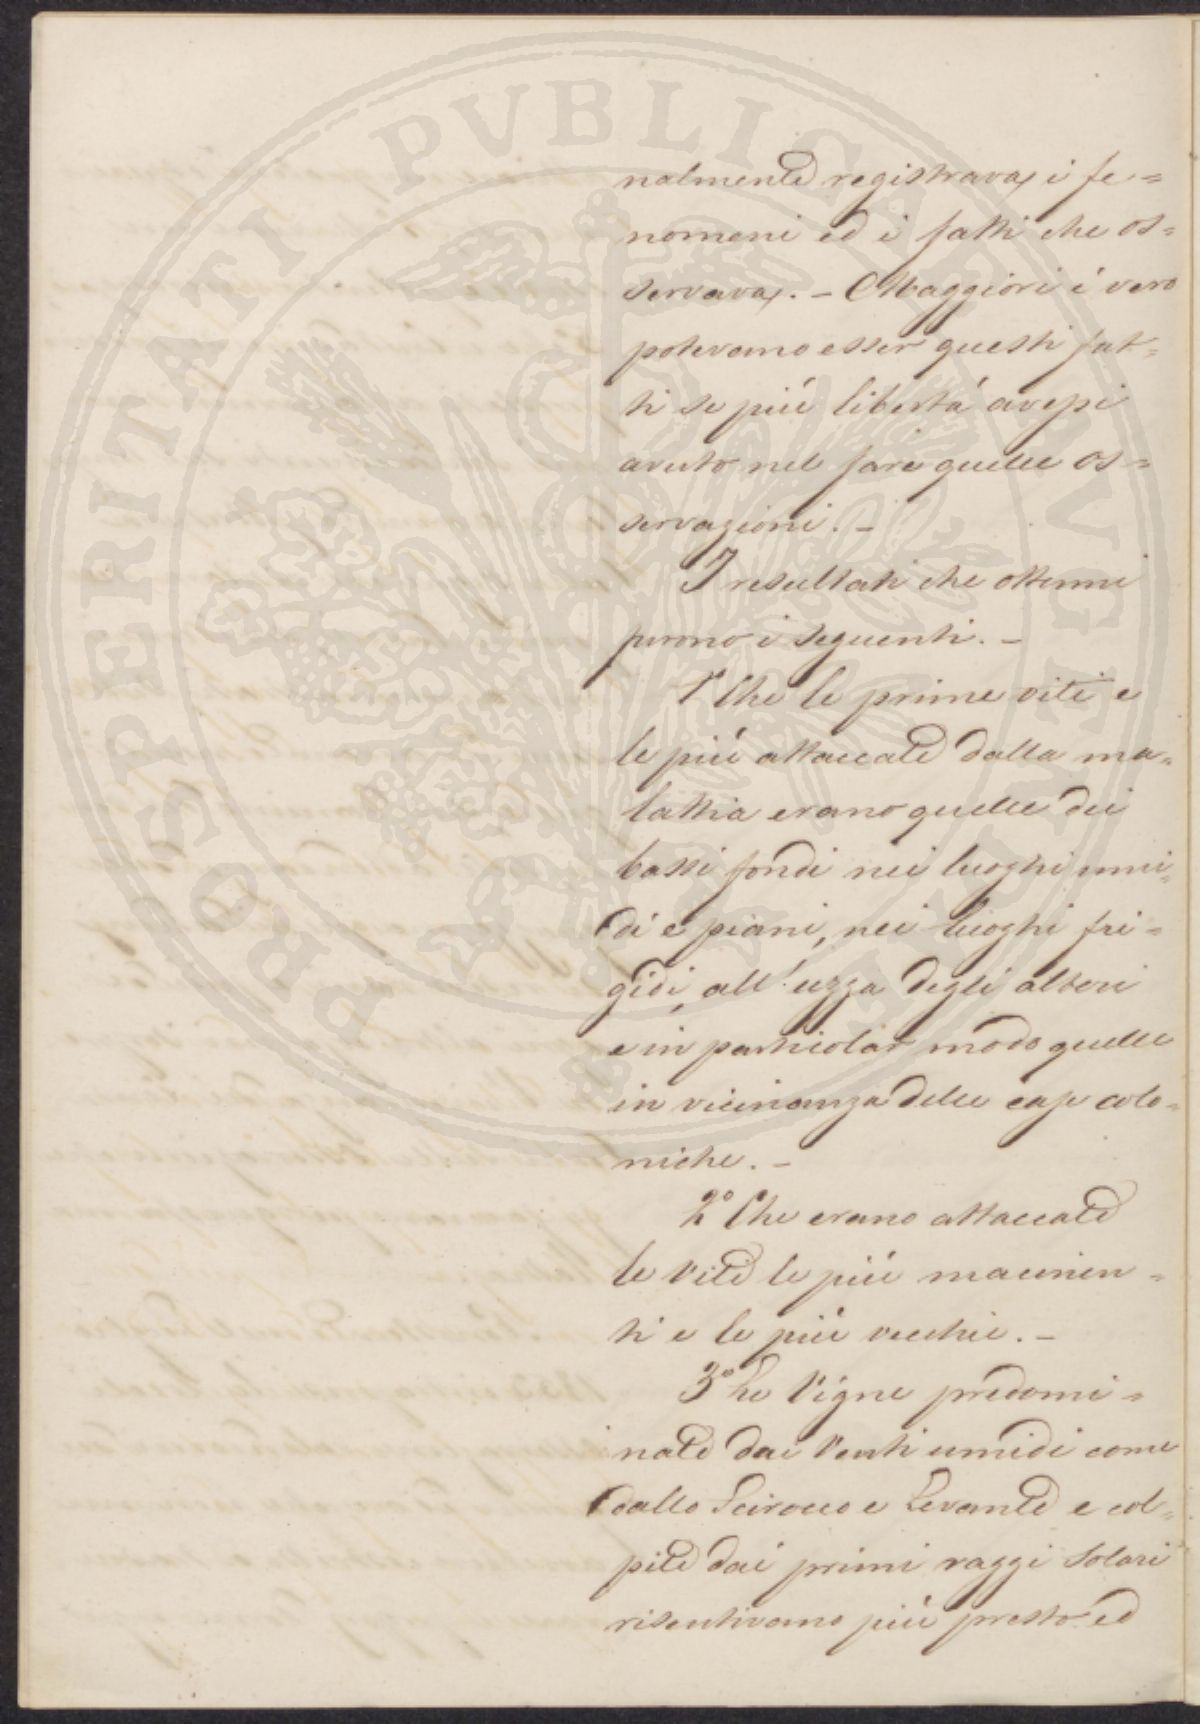 nalmente registravasi i fe=
nomeni ed i fatti che os=
servavasi. - Maggiori é vero
potevano esser questi fat=
ti se piú libertá avessi
avuto nel fare quelle os=
servazioni. -
I resultati che ottenni
furono i seguenti. -
1° Che le prime viti e
le piú attaccate dalla ma=
lattia erano quelle dei
bassi fondi nei luoghi umi=
di e piani, nei luoghi fri=
gidi, all'uzza degli alberi
e in particolar modo quelle
in vicinanza delle case colo=
niche. -
2° Che erano attaccate
le Vite le piú macinen=
ti e le piú vecchie. -
3° Le Vigne predomi=
nate dai Venti umidi come
dallo Scirocco e Levante e col=
pite dai primi raggi Solari
risentivano piú presto ed
PROSPERITATI PVBLICAE AVGENDAE